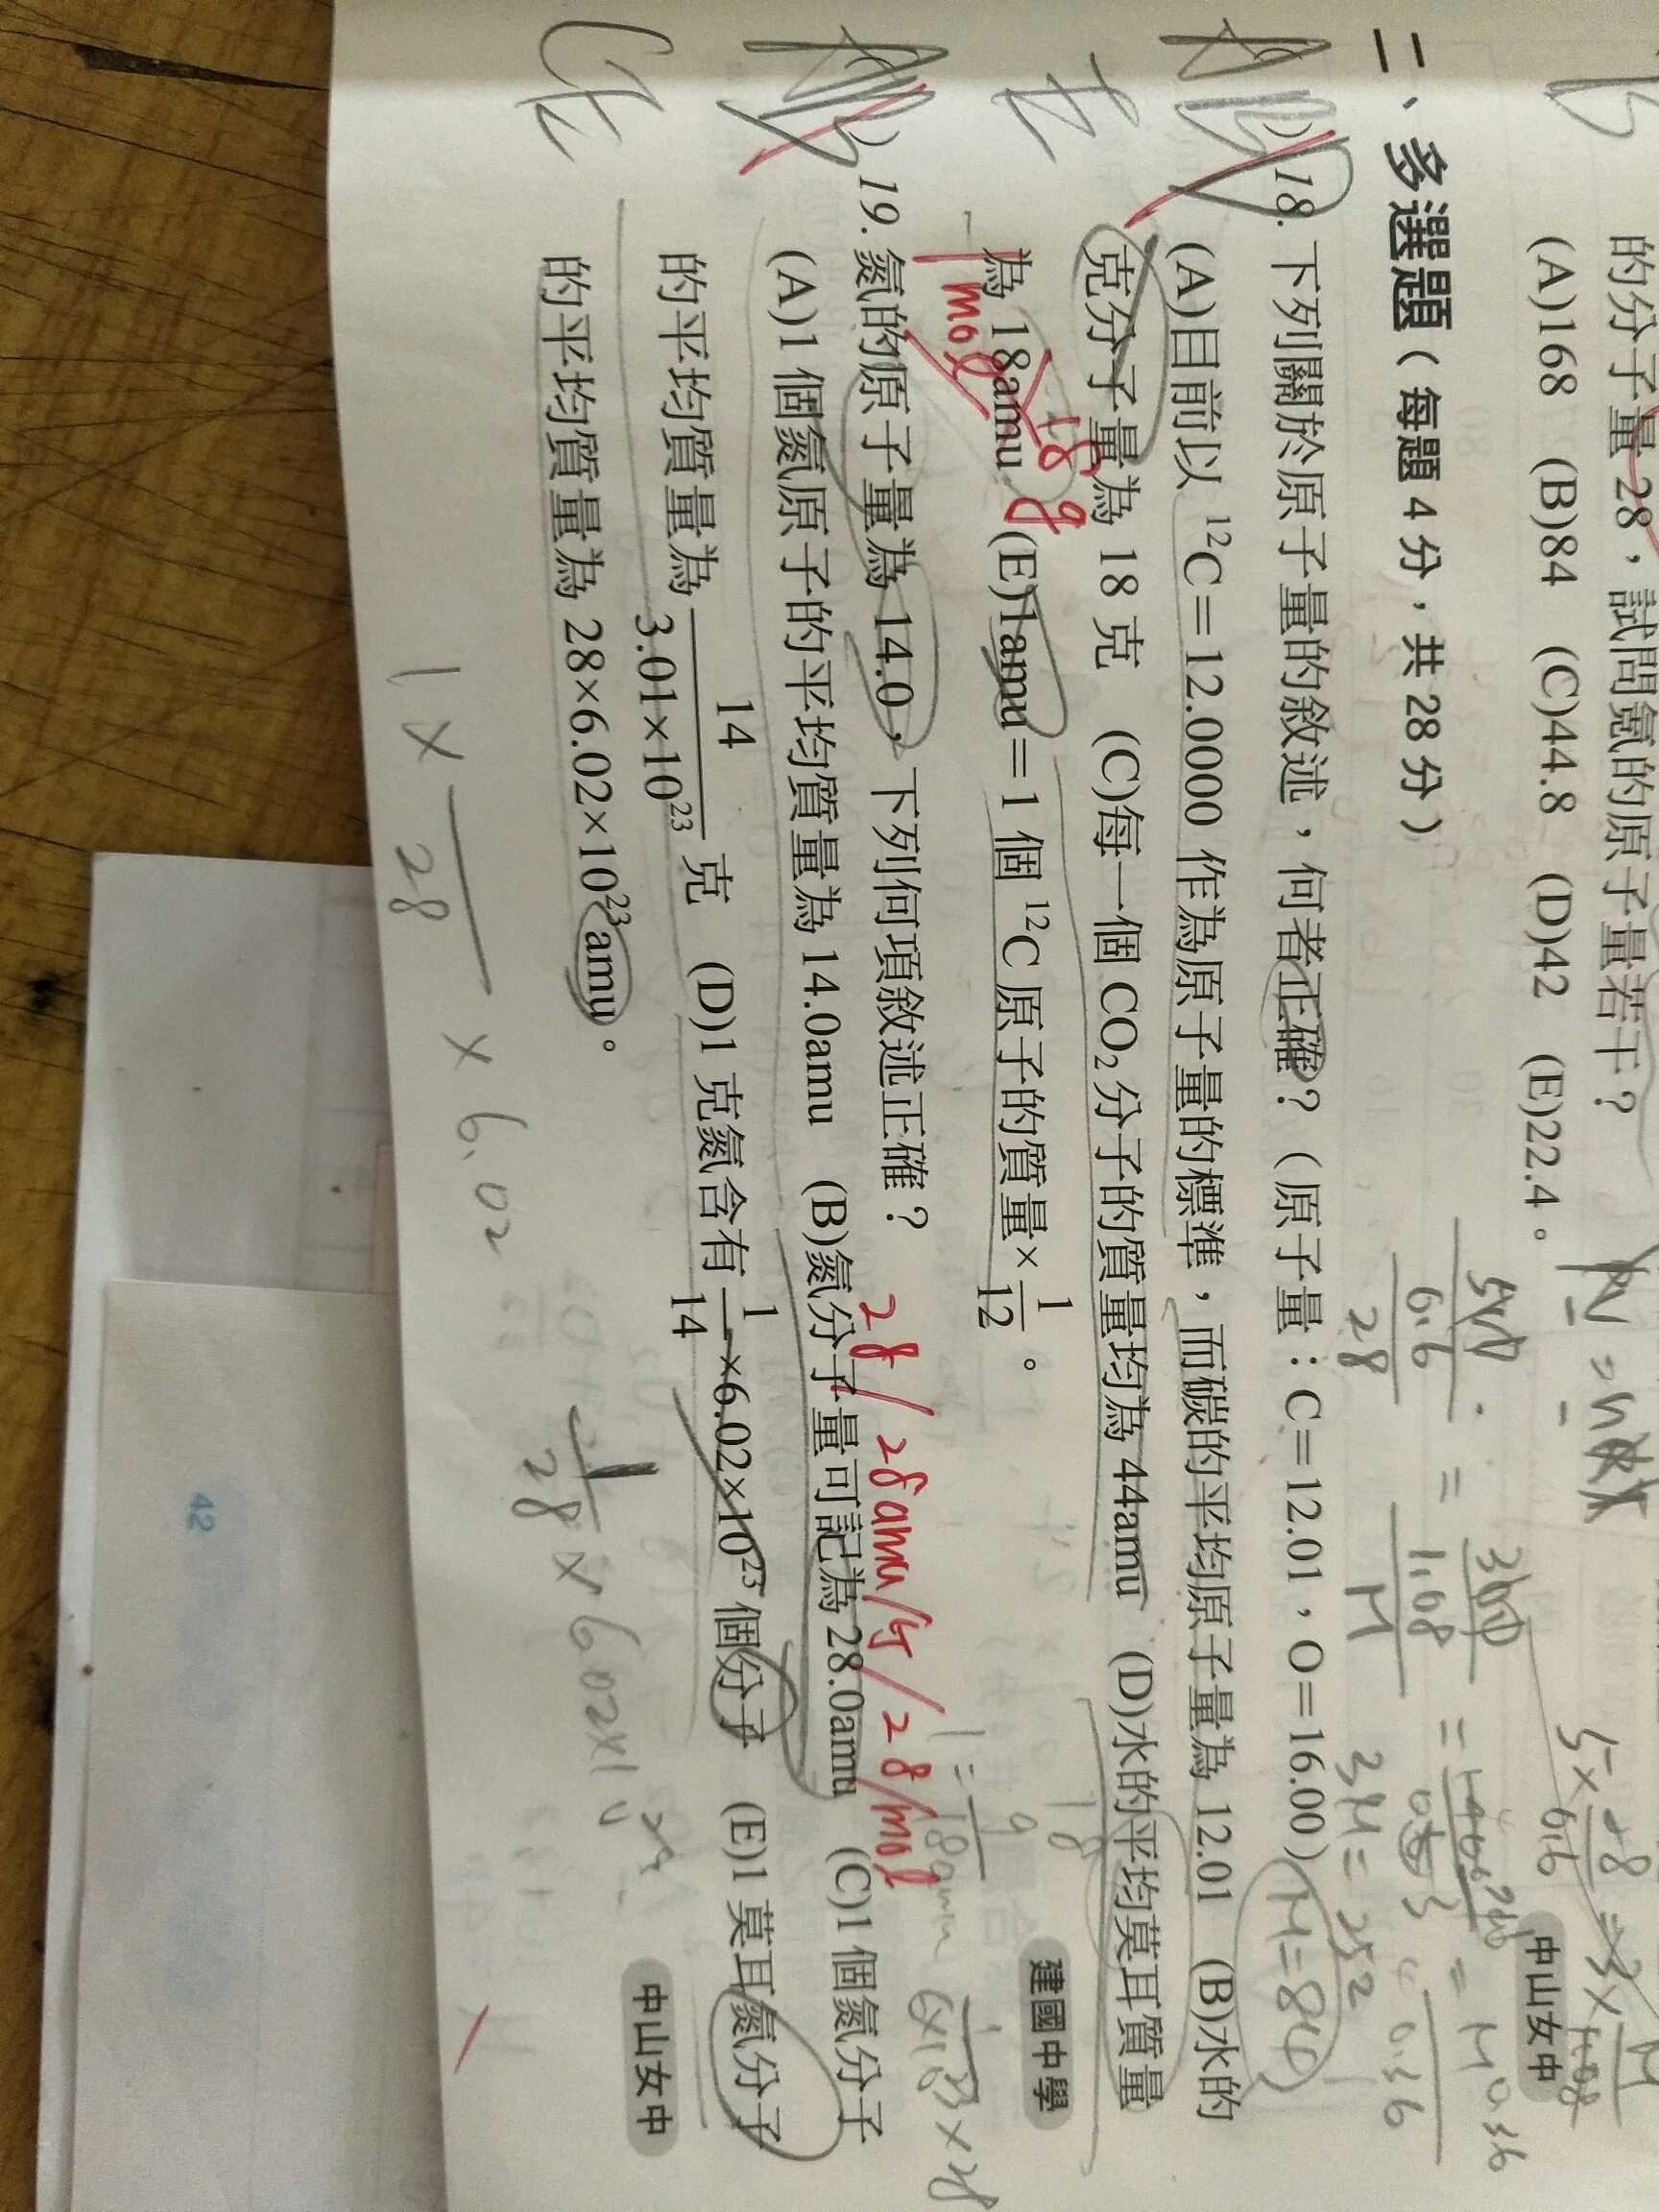 的分子量28，試問氪的原子量若干？
(A)168 (B)84 (C)44.8 (D)42 (E)22.4。
中山女中
二、多選題（每題4分，共28分）
18. 下列關於原子量的敘述，何者正確？（原子量：C=12.01，O=16.00）
M=84
(A)目前以 ¹²C=12.0000 作為原子量的標準，而碳的平均原子量為 12.01 (B)水的
克分子量為 18 克 (C)每一個 CO₂ 分子的質量均為 44amu (D)水的平均莫耳質量
為 18amu (E)1amu=1 個 ¹²C 原子的質量×1/12。
建國中學
18 g
1 mol
19. 氮的原子量為 14.0，下列何項敘述正確？
28/28amu/個/28/mol
(A)1 個氮原子的平均質量為 14.0amu (B)氮分子量可記為 28.0amu (C)1 個氮分子
的平均質量為 14/3.01×10²³ 克 (D)1 克氮含有 1/14×6.02×10²³ 個分子 (E)1 莫耳氮分子
的平均質量為 28×6.02×10²³amu。
中山女中
CE
1 × 1/28 × 6.02
42